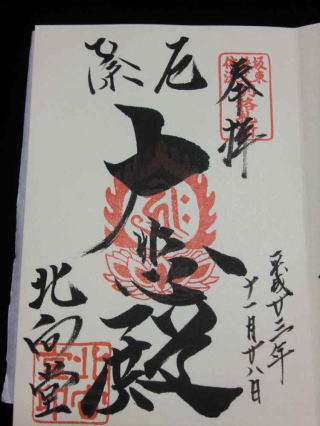 奉拝
平成廿三年
十一月廿八日
厄除
大悲殿
北向堂